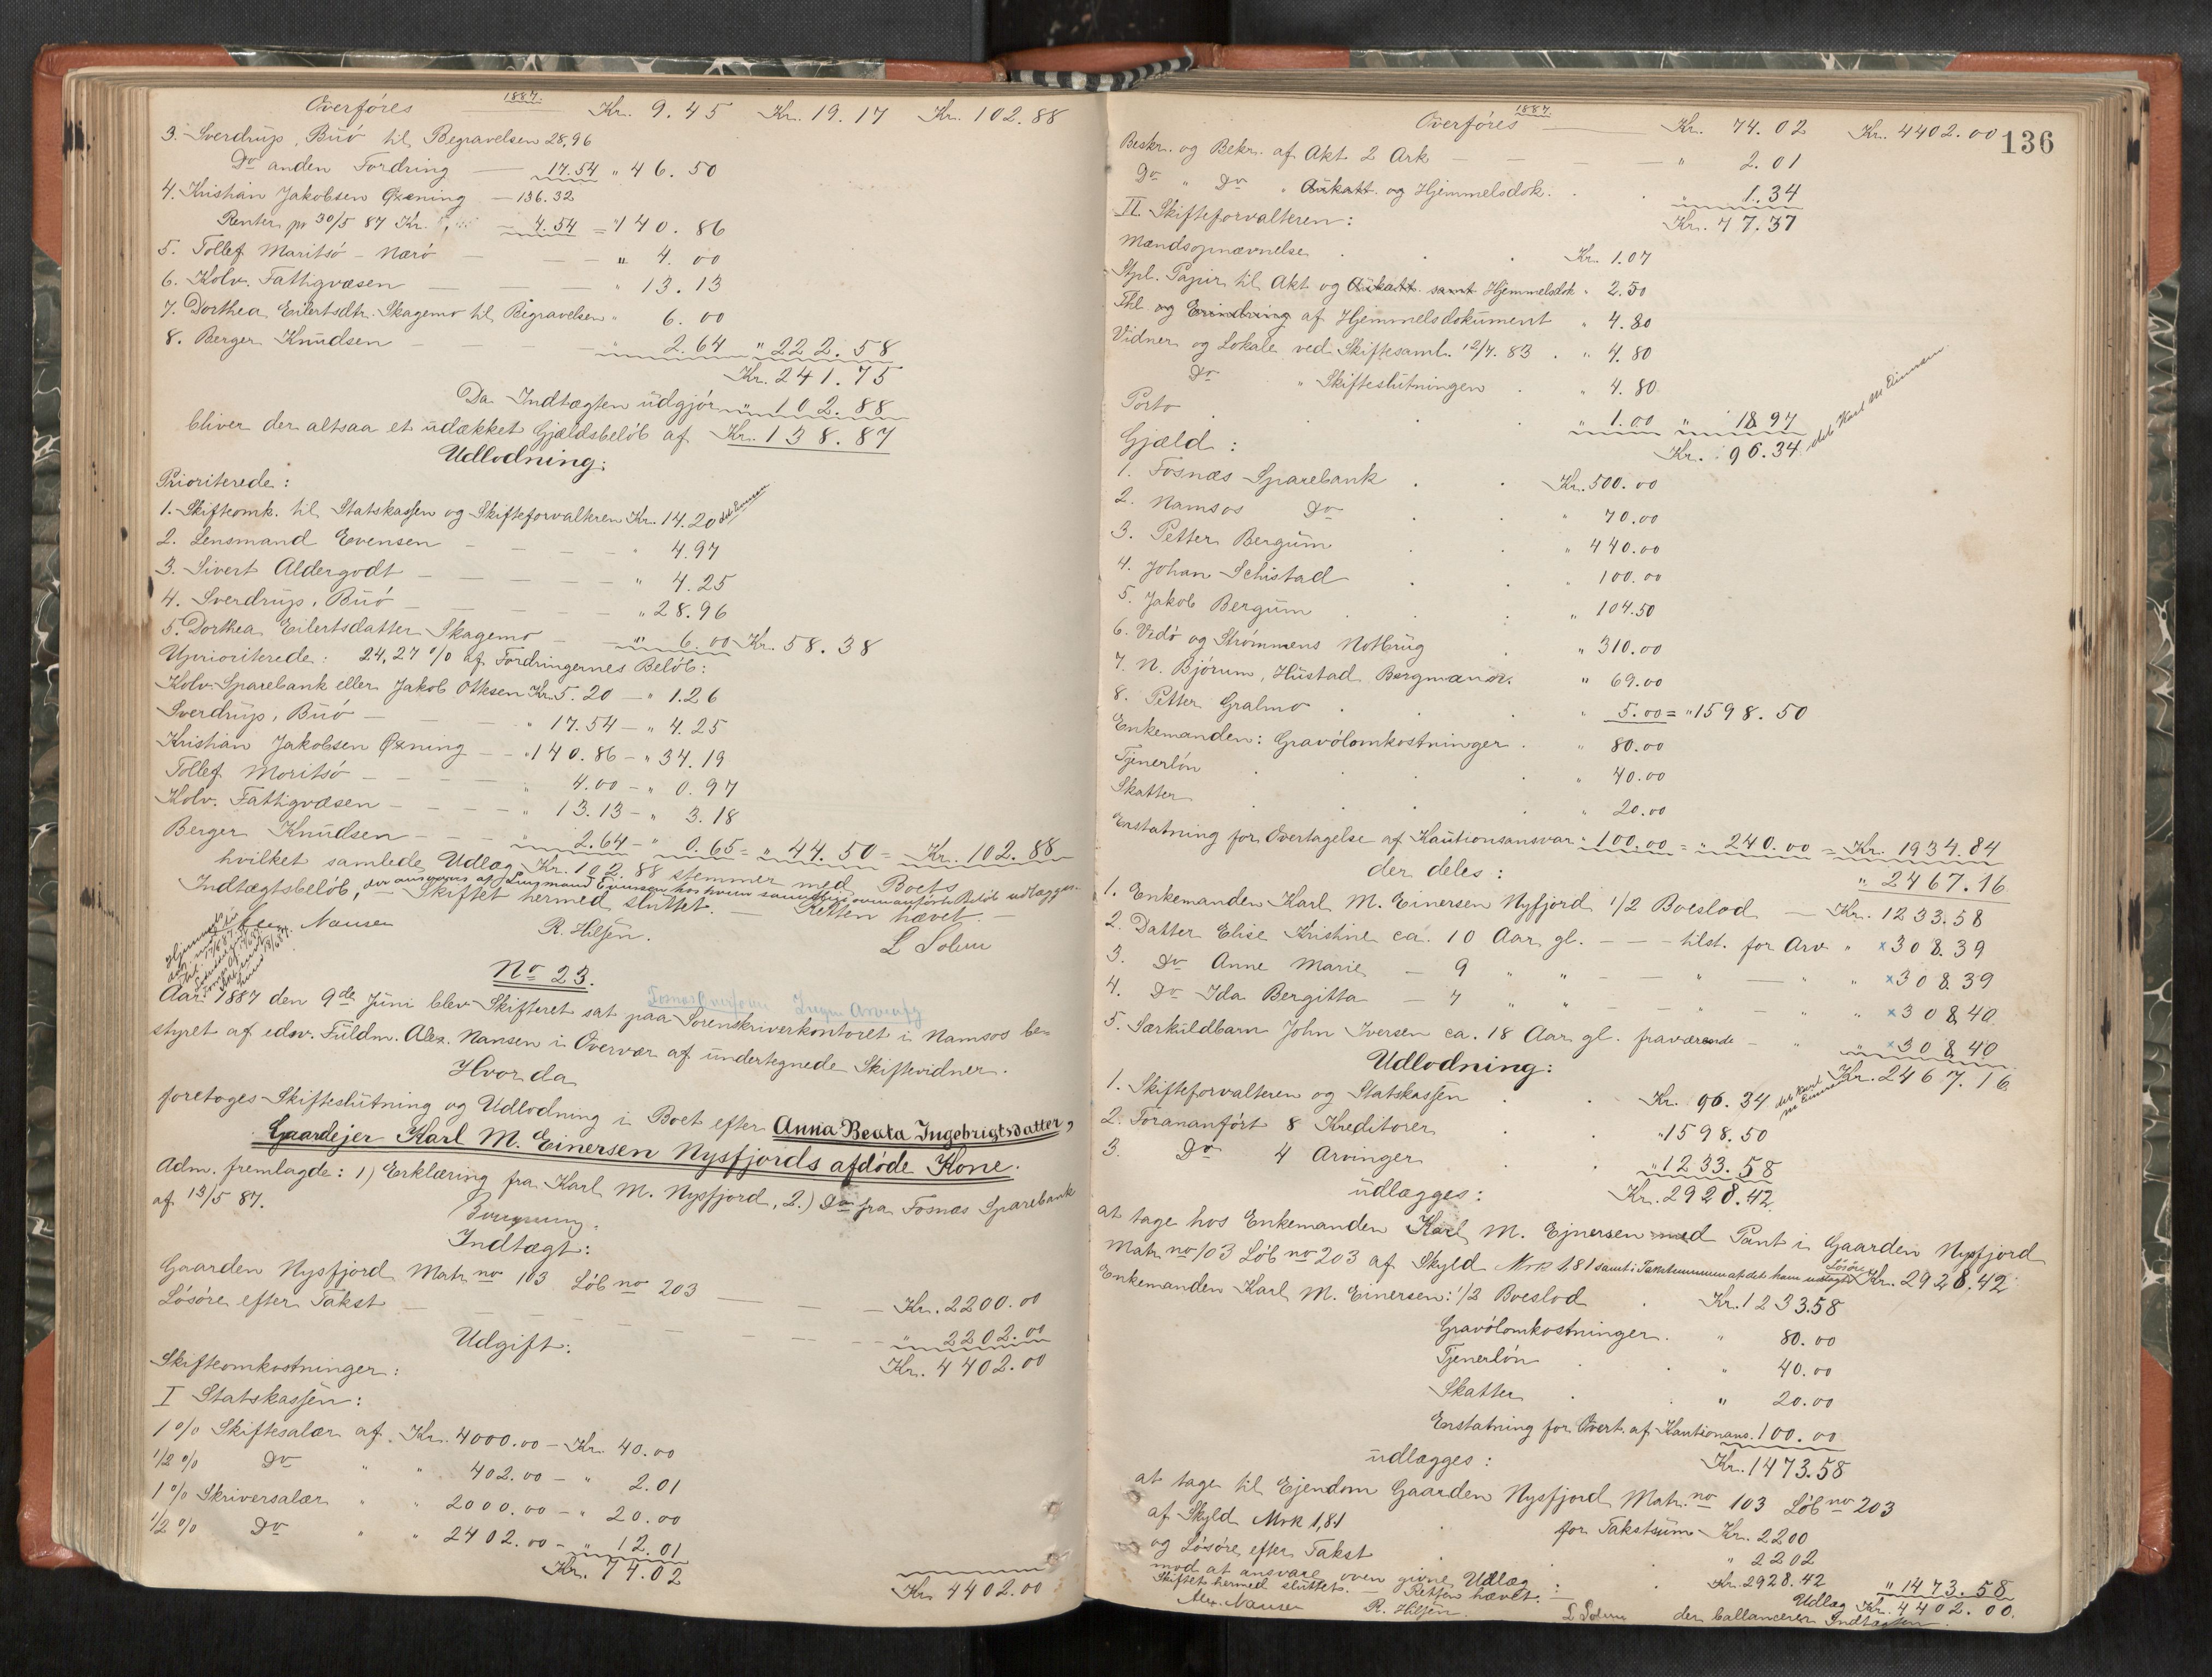 1887.
Overføres — Kr. 9.45 Kr. 19.17 Kr. 102.88
3. Sverdrup, Buö til Begravelsen 28,96
Do anden Fordring — 17.54 " 46.50
4. Kristian Jakobsen Øxning — 136.32
Renter pr 30/5 87 Kr. — 4.54 = " 140.86
5. Tollef Maritsö - Nærö — — " 4.00
6. Kolv. Fattigvæsen — — — " 13.13
7. Dorthea Eilertsdtr. Skagemo til Begravelsen " 6.00
8. Berger Knudsen — — — " 2.64 " 222.58
Kr. 241.75
Da Indtægten udgjör " 102.88
bliver der altsaa et udækket Gjældsbelöb af Kr. 138.87
Udlodning:
Prioriterede:
1. Skifteomk. til Statskassen og Skifteforvalteren Kr. 14.20
2. Lensmand Evensen — — — " 4.97
3. Sivert Aldergodt — — — — " 4.25
4. Sverdrup, Buö — — — — " 28.96
5. Dorthea Eilertsdatter Skagemo — — " 6.00 Kr. 58.38
Uprioriterede: 24,27 % af Fordringernes Belöb:
Kolv. Sparebank eller Jakob Ottesen Kr. 5.20 — " 1.26
Sverdrup, Buö — — — " 17.54 — " 4.25
Kristian Jakobsen Øxning — — " 140.86 — " 34.19
Tollef Moritsö — — — " 4.00 — " 0.97
Kolv. Fattigvæsen — — — " 13.13 — " 3.18
Berger Knudsen — — — " 2.64 — " 0.65 = " 44.50 = Kr. 102.88
hvilket samlede Udlæg Kr. 102.88 stemmer med Boets
Indtægtsbelöb, — Skiftet hermed sluttet. — Retten hævet. —
Nansen R. Hilsen. L Solem
No 23.
Aar 1887 den 9de Juni blev Skifteret sat paa Sorenskriverkontoret i Namsos be-
styret af edsv. Fuldm. Alex. Nansen i Overvær af undertegnede Skiftevidner.
Hvor da
foretoges Skifteslutning og Udlodning i Boet efter Anna Beata Ingebrigtsdatter,
Gaardejer Karl M. Einersen Nysfjords afdöde Kone.
Adm. fremlagde: 1) Erklæring fra Karl M. Nysfjord, 2.) Do fra Fosnæs Sparebank
af 13/5 87.
Indtægt:
Gaarden Nysfjord Matr. no 103 Löb no 203 — — Kr. 2200.00
Lösöre efter Takst — — — — — " 2202.00
Kr. 4402.00
Udgift:
Skifteomkostninger:
I Statskassen:
1 % Skiftesalær af Kr. 4000.00 — Kr. 40.00
1/2 % Do " " 402.00 — " 2.01
1 % Skriversalær " " 2000.00 — " 20.00
1/2 % Do " " 2402.00 — " 12.01
Kr. 74.02 Kr. 4402.00
136
1887.
Overføres — Kr. 74.02 Kr. 4402.00
Beskr. og Bekr. af Akt 2 Ark — — — " 2.01
Do " Do " Aukatt. og Hjemmelsdok. . " 1.34
II. Skifteforvalteren: Kr. 77.37
Mændsopnævnelse . . . Kr. 1.07
Stpl. Papir til Akt og Aukatt. samt Hjemmelsdok " 2.50
Thl. og af Hjemmelsdokument " 4.80
Vidner og Lokale ved Skiftesaml. 12/7. 83 . " 4.80
Do " Skifteslutningen . " 4.80
Porto . . . " 1.00 " 18 97
Kr. 96.34
Gjæld:
1. Fosnæs Sparebank . . Kr. 500.00
2. Namsos Do . . " 70.00
3. Petter Bergum . . " 440.00
4. Johan Schistad . . " 100.00
5. Jakob Bergum . . " 104.50
6. Vedö og Strömmens Notbrug . " 310.00
7. N. Bjórum, Hustad, Bergmandr. " 69.00
8. Petter Gralmo . . " 5.00 = " 1598.50
Enkemanden: Gravölomkostninger . " 80.00
Tjenerlön . . " 40.00
Skatter . . . " 20.00
Erstatning for Overtagelse af Kautionsansvar " 100.00 = " 240.00 = Kr. 1934.84
der deles: " 2467.16
1. Enkemanden Karl M. Einersen Nysfjord 1/2 Boeslod — Kr. 1233.58
2. Datter Elise Kristine ca. 10 Aar gl. — — — tilst. for Arv. " x308.39
3. Do Anne Marie — 9 " " — " — " " x308.39
4. Do Ida Bergitta — 7 " " — " — " " x308,40
5. Særkuldbarn John Iversen ca. 18 Aar gl. fraværende — " " x308,40
Kr. 2467.16
Udlodning:
1. Skifteforvalteren og Statskassen . . Kr. 96.34
2. Foranfört 8 Kreditorer . . " 1598.50
3. Do 4 Arvinger . . " 1233.58
udlægges: Kr. 2928.42
at tage hos Enkemanden Karl M. Ejnersen med Pant i Gaarden Nysfjord
Matr. no 103 Löb no 203 af Skyld Mrk 1.81 samt i Lösöre Kr. 2928.42
Enkemanden Karl M. Einersen: 1/2 Boeslod . Kr. 1233.58
Gravölomkostninger . " 80.00
Tjenerlön . " 40.00
Skatter . " 20.00
Erstatning for Overt. af Kautionans. 100.00
udlægges: Kr. 1473.58
at tage til Ejendom Gaarden Nysfjord Matr. no 103 Löb no 203
af Skyld Mrk 1,81 . for Takstsum Kr. 2200
og Lösöre efter Takst . " 2202
mod at ansvare oven givne Udlæg : Kr. 2928.42 " 1473.58
Skiftet hermed sluttet. — Retten hævet. — Udlæg Kr. 4402.00.
Alex. Nansen R. Hilsen. L Solem der ballancerer Indtægten.